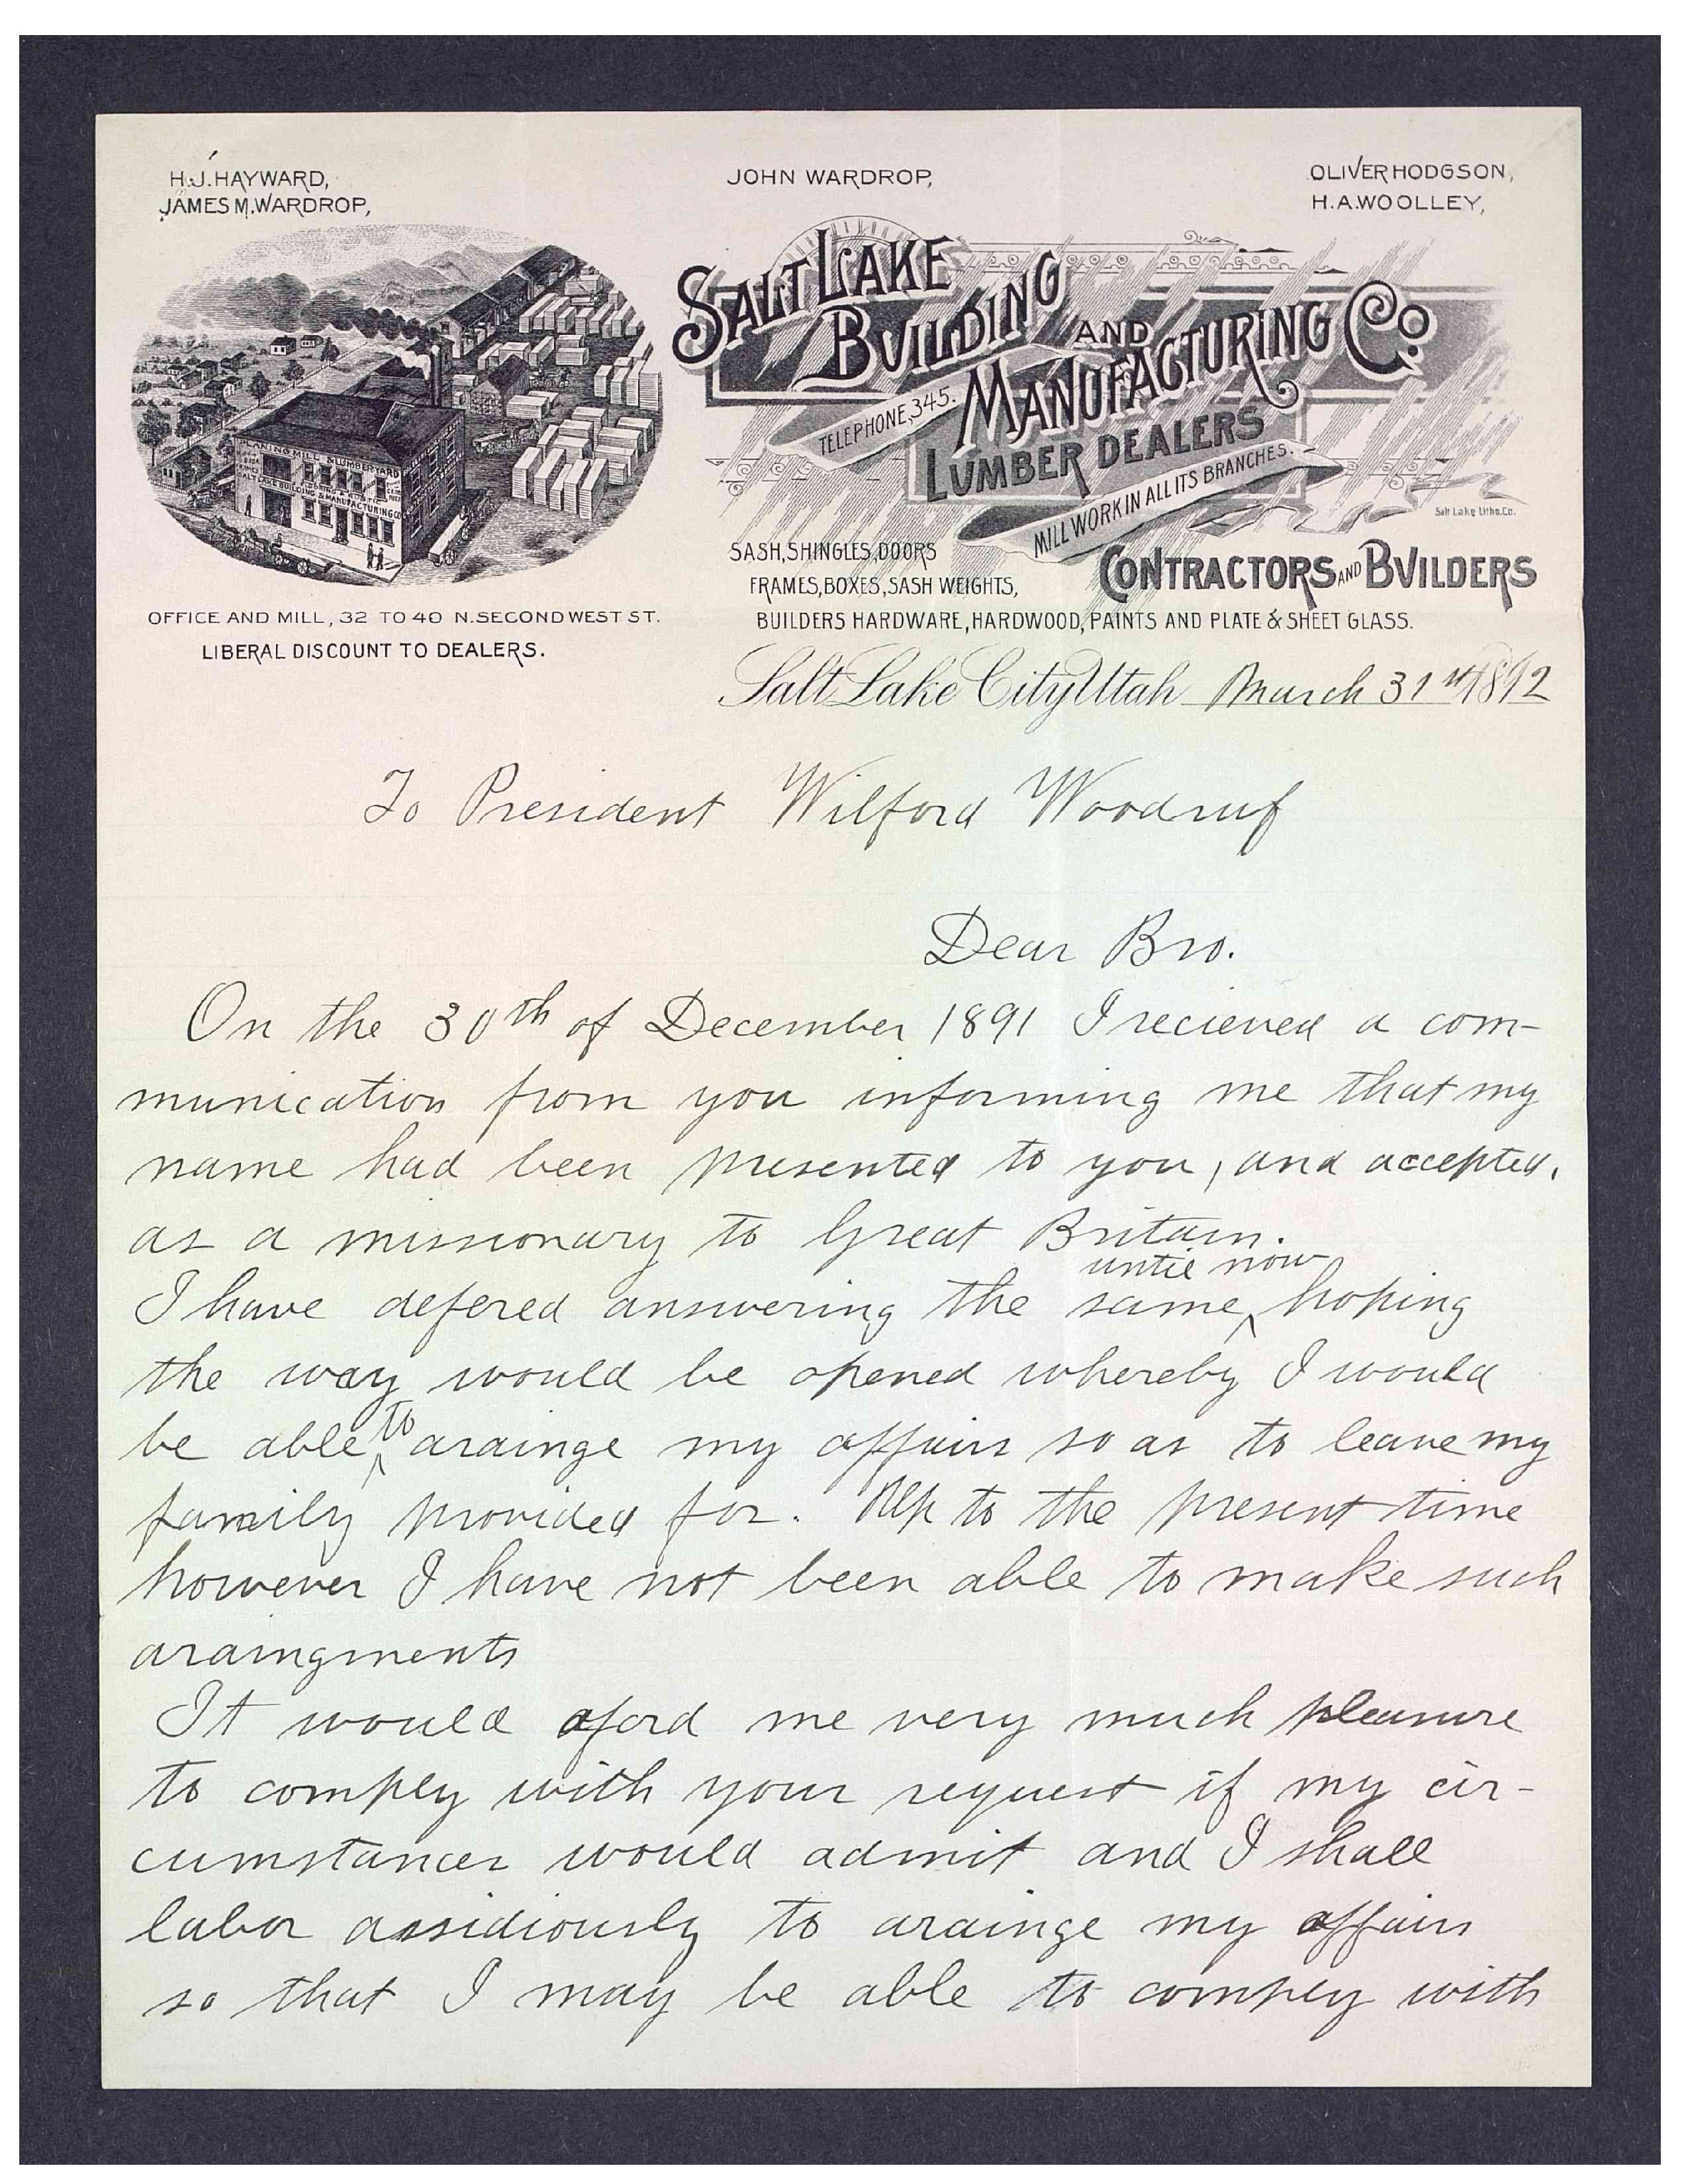 H.J. HAYWARD,
JAMES M. WARDROP,
JOHN WARDROP,
OLIVER HODGSON,
H.A. WOOLLEY,
SALT LAKE
BUILDING AND
MANUFACTURING Co
TELEPHONE, 345.
LUMBER DEALERS
MILL WORK IN ALL ITS BRANCHES.
Salt Lake Litho. Co.
PLANING MILL & LUMBER YARD
SALT LAKE BUILDING & MANUFACTURING CO
SASH, SHINGLES, DOORS
FRAMES, BOXES, SASH WEIGHTS,
CONTRACTORS AND BUILDERS
BUILDERS HARDWARE, HARDWOOD, PAINTS AND PLATE & SHEET GLASS.
OFFICE AND MILL, 32 TO 40 N. SECOND WEST ST.
LIBERAL DISCOUNT TO DEALERS.
Salt Lake City Utah March 31st 1892
To President Wilford Woodruf
Dear Bro.
On the 30th of December 1891 I recieved a com-
munication from you informing me that my
name had been presented to you, and accepted,
as a missionary to Great Britain.
until now
I have defered answering the same ^ hoping
the way would be opened whereby I would
be able ^to arainge my affairs so as to leave my
family provided for. Up to the present time
however I have not been able to make such
araingments
It would aford me very much pleasure
to comply with your request if my cir-
cumstances would admit and I shall
labor assidiously to arainge my affairs
so that I may be able to comply with